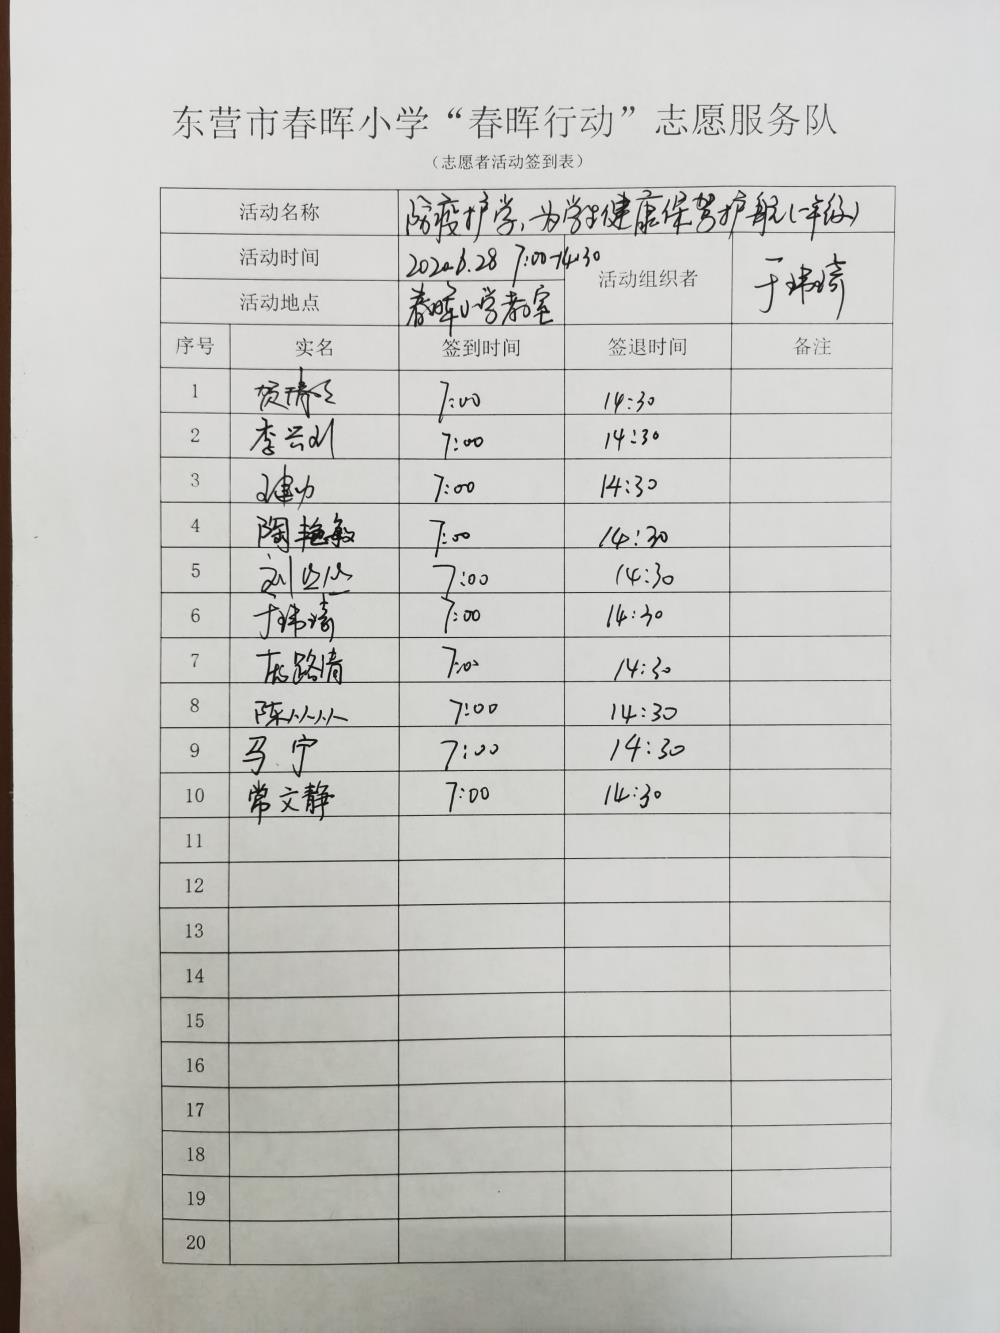 东营市春晖小学“春晖行动”志愿服务队
（志愿者活动签到表）
活动名称 防疫护学，为学生健康保驾护航（一年级）
活动时间 2020.6.28 7:00-14:30 活动组织者 于玮琦
活动地点 春晖小学教室
序号 实名 签到时间 签退时间 备注
1 7:00 14:30
2 李兴刚 7:00 14:30
3 7:00 14:30
4 陶艳敏 7:00 14:30
5 7:00 14:30
6 于玮琦 7:00 14:30
7 路倩 7:00 14:30
8 陈从从 7:00 14:30
9 马宁 7:00 14:30
10 常文静 7:00 14:30
11
12
13
14
15
16
17
18
19
20